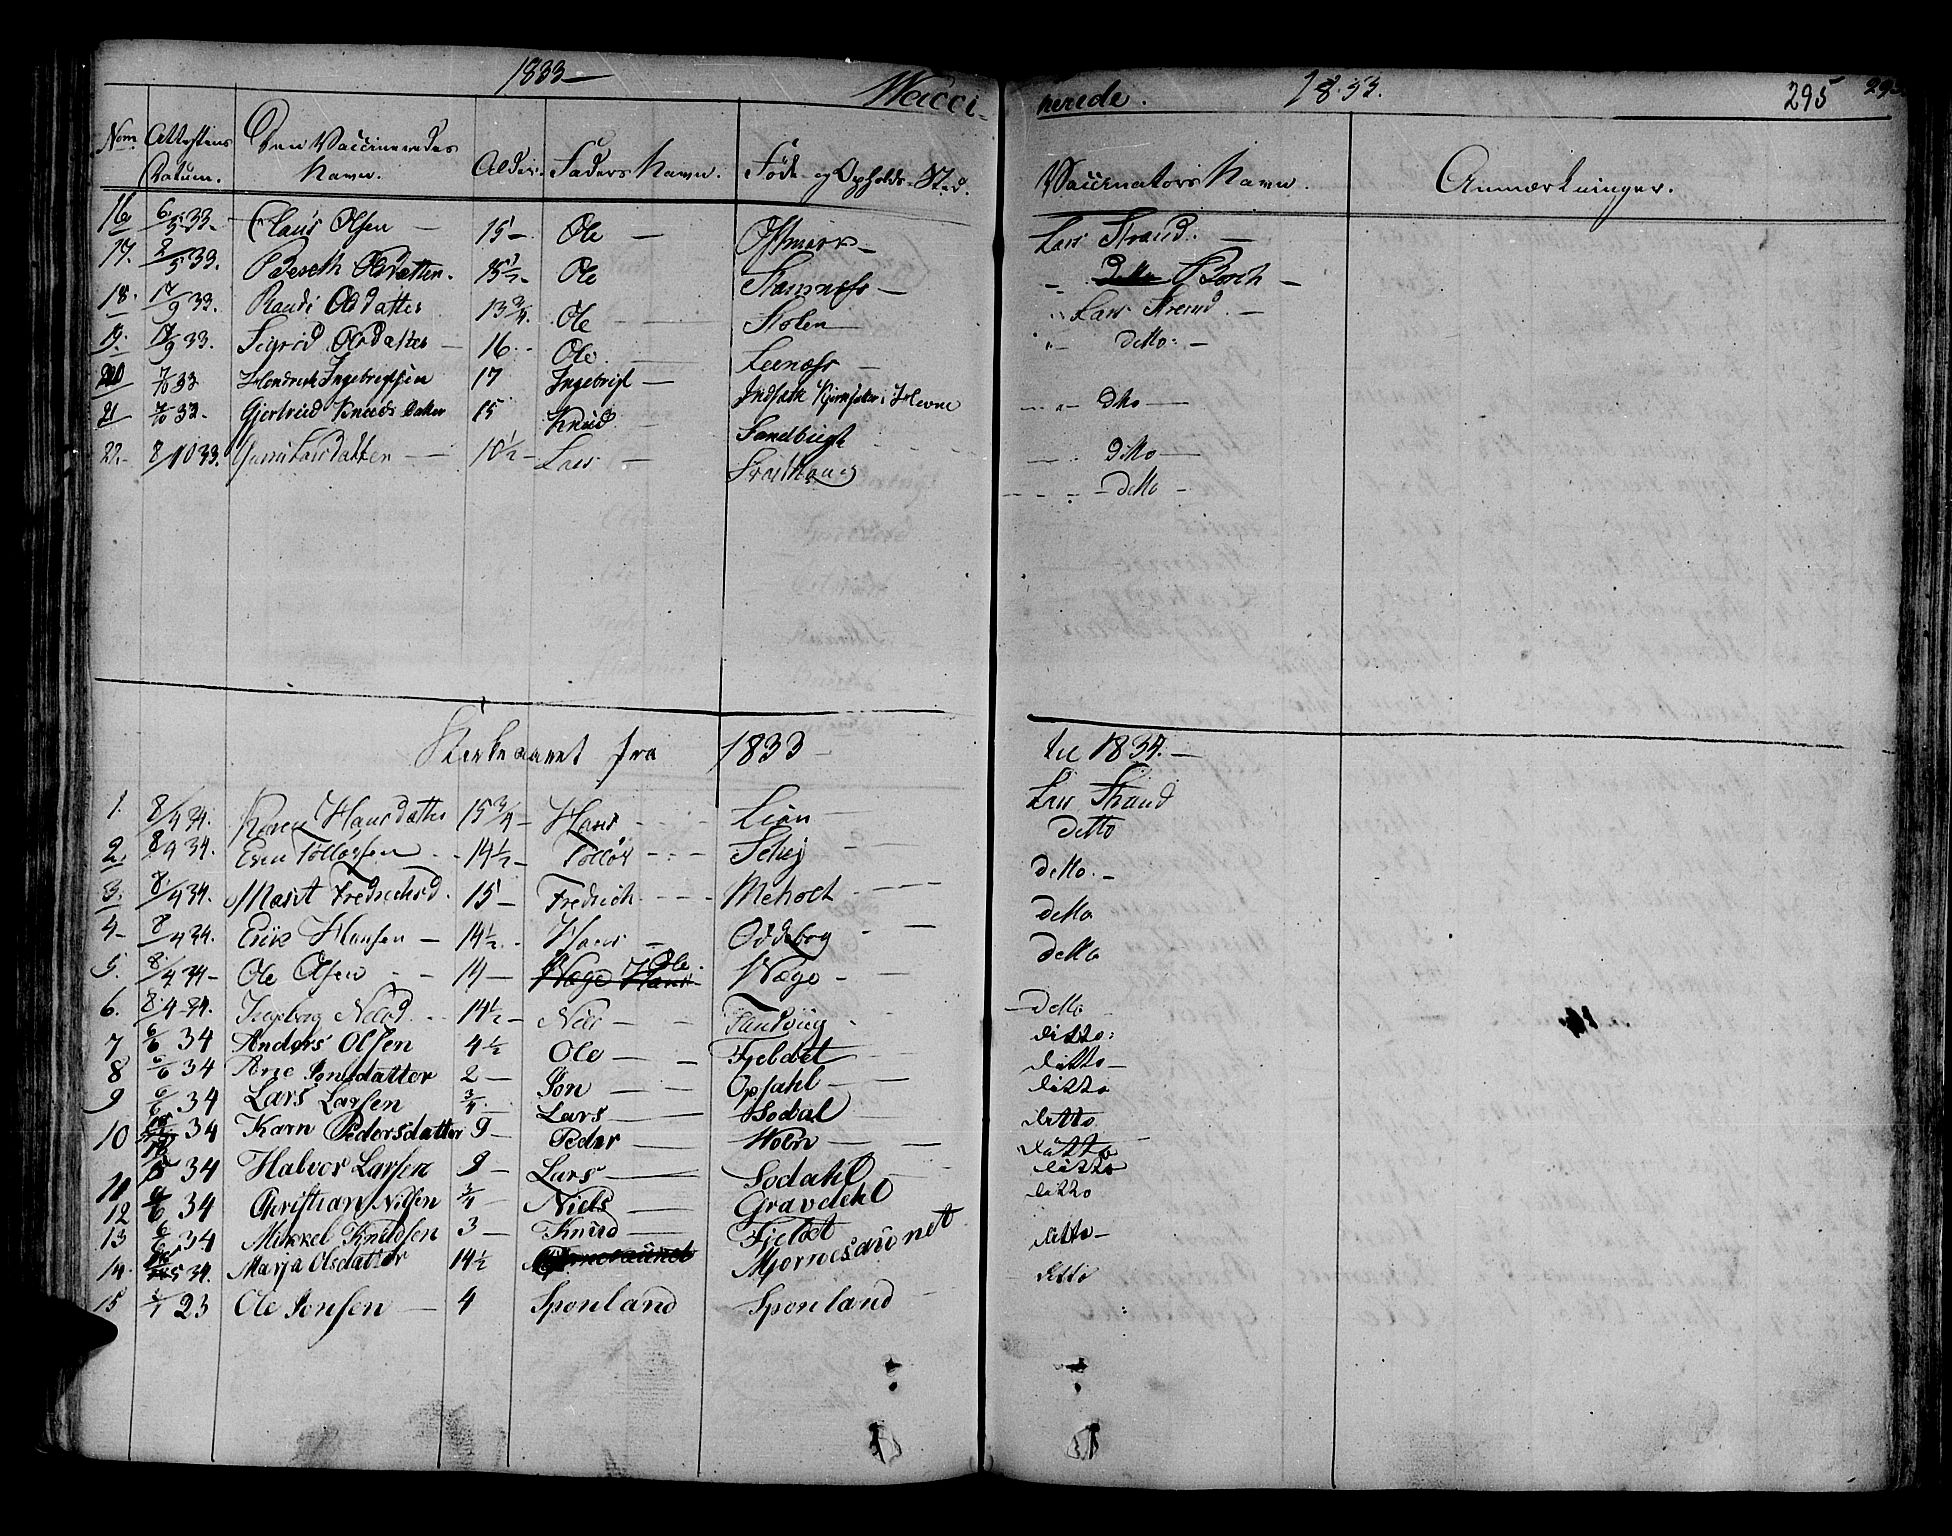 1833 Wacci- nerede. 1833. 295
Nom. Attestens Datum. Den Vaccineredes Navn. Alder. Faders Navn. Føde- og Opholds-Sted. Vaccinators Navn. Anmærkninger.
16. 6/5 33. Claus Olsen 15 Ole Lars Strand
17. 8/5 33. Bereth Olsdatter 15 1/2 Ole Stamness Borch
18. 17/9 33. Randi Olsdatter 13 3/4 Ole Stolen Lars Strand
19. 17/9 33. Sigrid Olsdatter 16 Ole Leeness ditto
20 7/10 33 Hendrich Ingebrigtsen 17 Ingebrigt Indsatte i Hevne dtto
21 7/10 33. Gjertrud Knuds Datter 15 Knud Sandbugt ditto
22. 8/10 33. Larsdatter 10 1/2 Lars ditto
Kirkeaaret fra 1833 til 1834.
1. 8/4 34. Karen Hansdatter 15 3/4 Hans Lian Lars Strand
2. 8/4 34. Even Tollefsen 14 1/2 Schej ditto
3. 8/4 34. Marit Fredrichsd. 15 Fredrich Meholt ditto
4. 8/4 34. Erik Hansen 14 1/2 Hans Oddebog ditto
5. 8/4 34 Ole Olsen 14 Ole Wæge ditto
6. 8/4 34. Ingeborg Nilsd. 14 1/2 Nils Sandviig ditto
7 6/6 34 Anders Olsen 4 1/2 Ole Fjeldet ditto
8 6/6 34 Ane Jonsdatter 2 Jon Opsahl ditto
9 6/6 34 Lars Larsen 3/4 Lars Sodal ditto
10 34 Karn Pedersdatter 9 Peder Wolen ditto
11 34 Halvor Larsen 9 Lars Sodahl ditto
12 6/6 34 Christian Nilsen 3/4 Niels Gravdehl ditto
13 6/6 34 Mikkel Knudsen 3 Knud Fjeldet ditto
14. 34. Marja Olsdatter 14 1/2 Mjornesaunet ditto
15 23 Ole Jonsen 4 Sponland Sponland